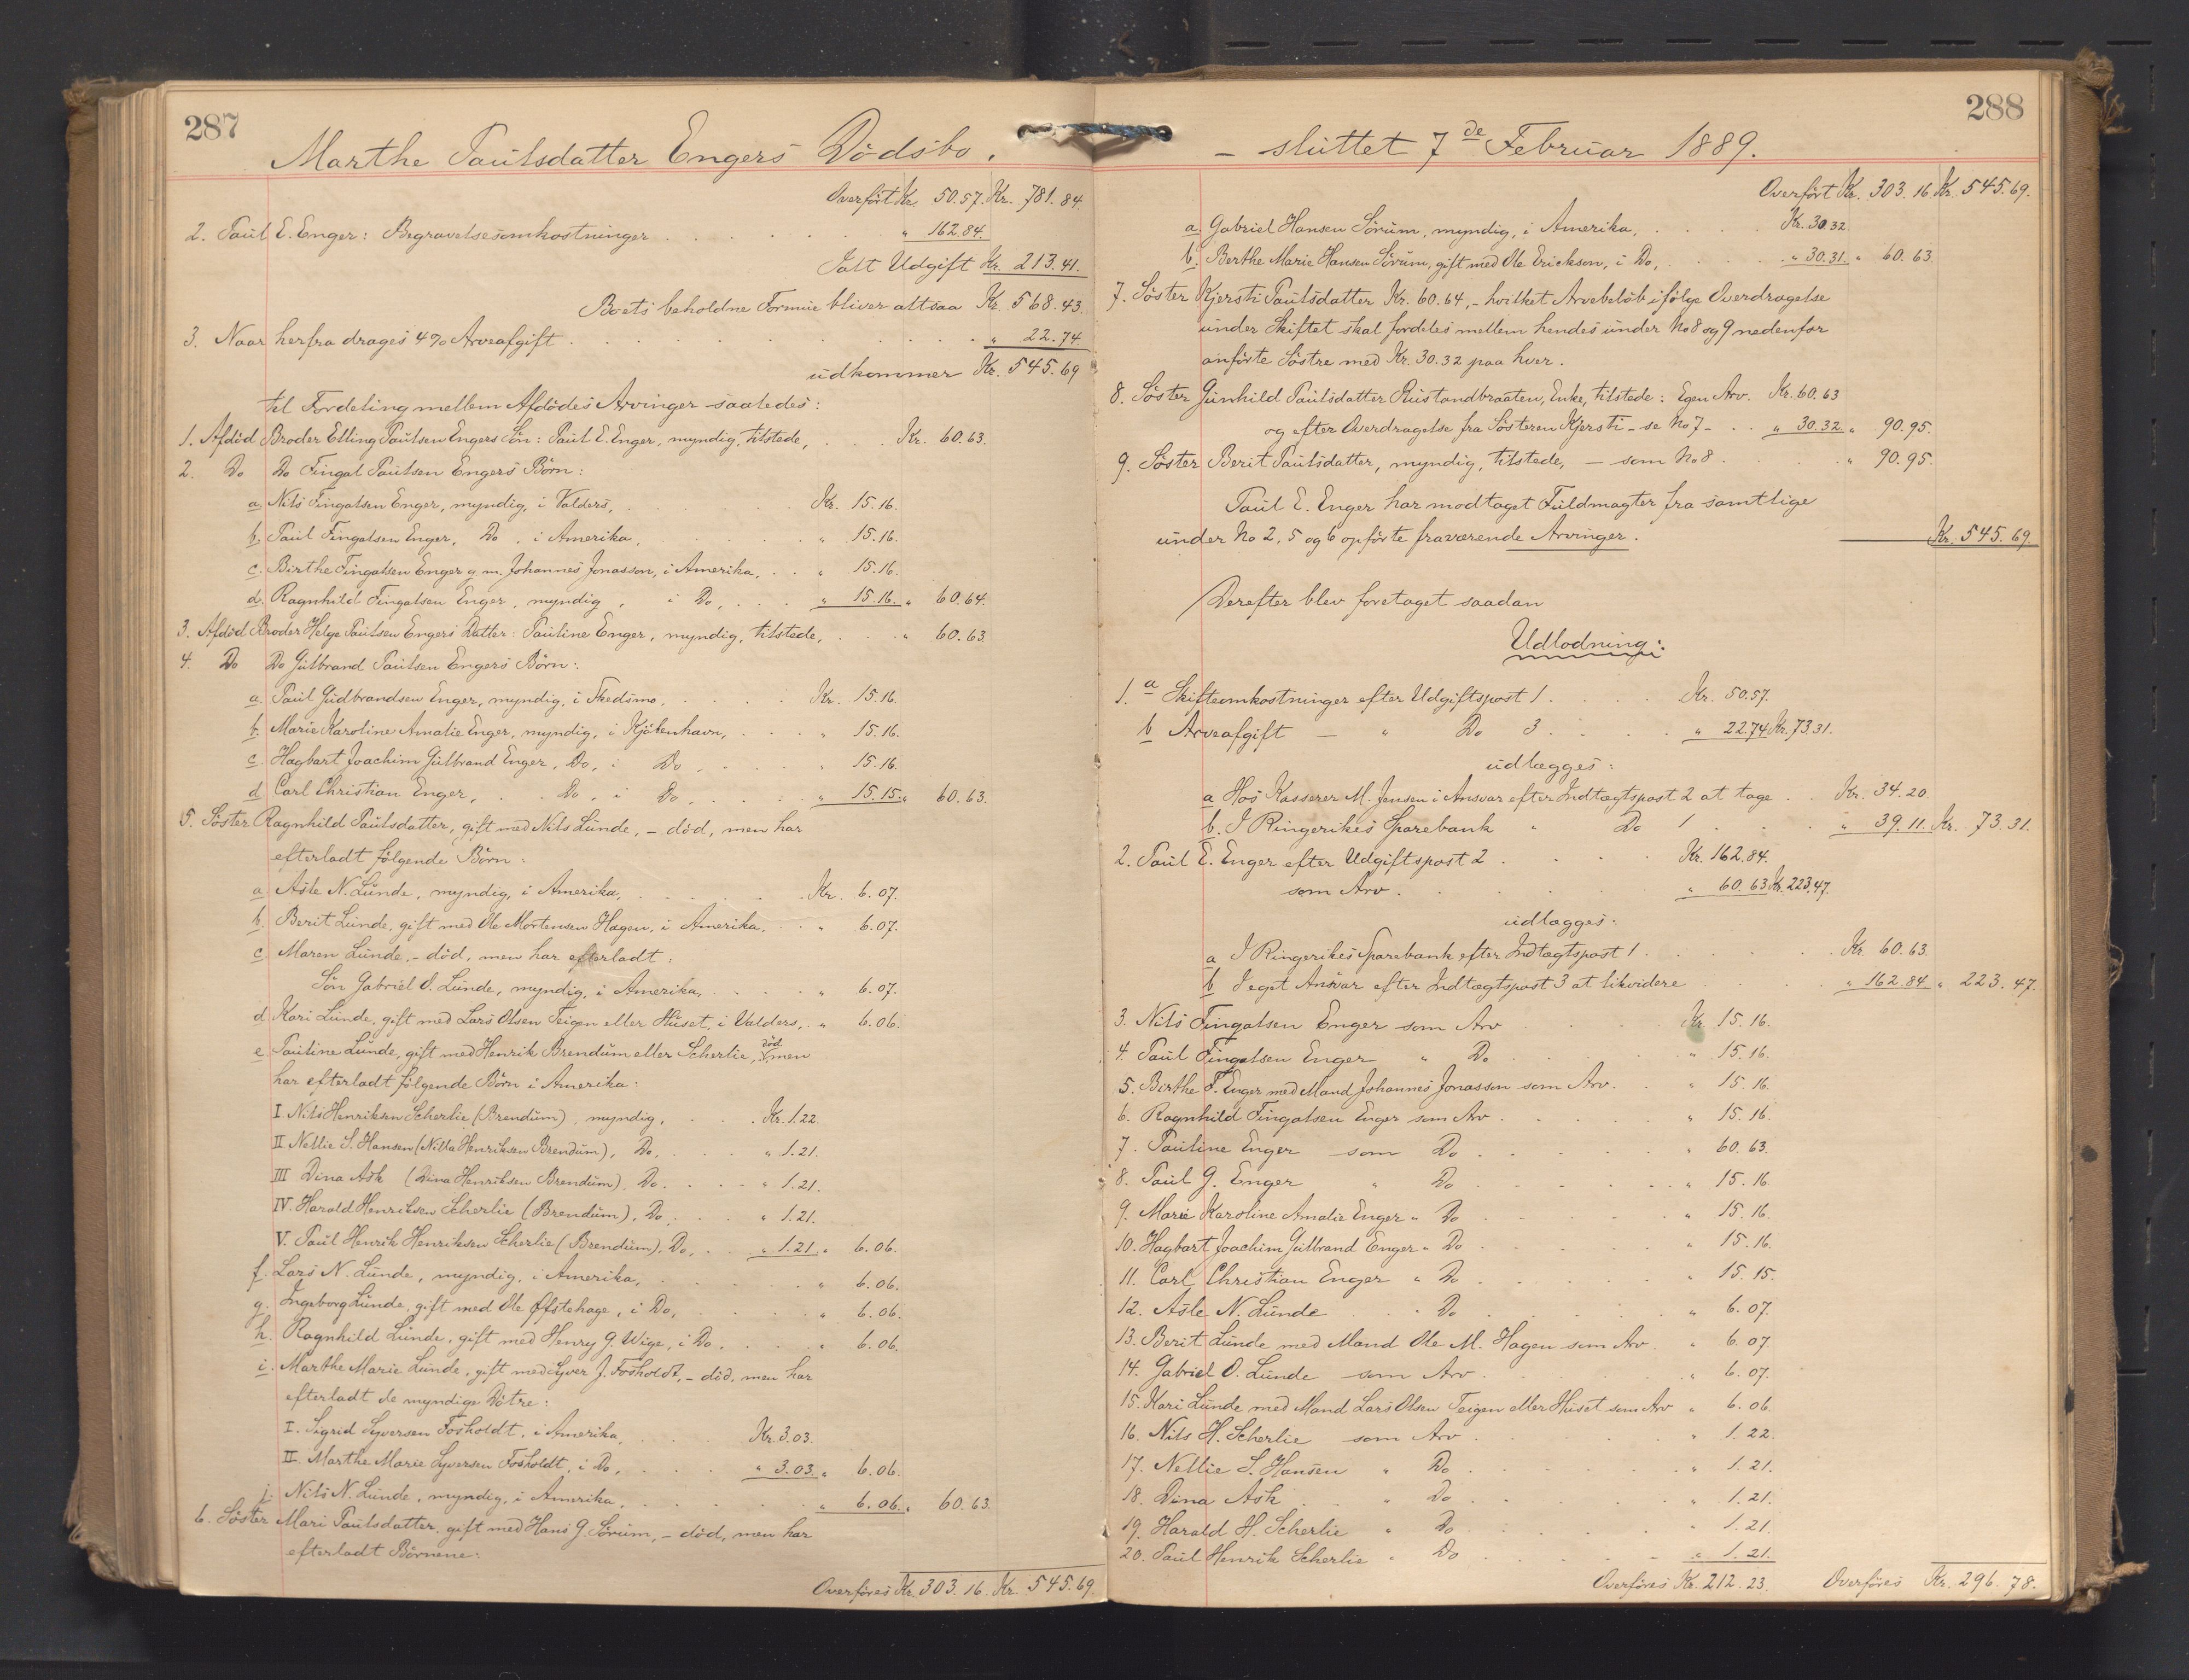 287
Marthe Paulsdatter Engers Dödsbo.
Overført Kr. 50.57. Kr. 781.84.
2. Paul E. Enger: Begravelsesomkostninger . . . . . " 162.84.
Ialt Udgift Kr. 213.41.
Boets beholdne Formue bliver altsaa Kr. 568.43.
3. Naar herfra drages 4% Arveafgift . . . . . " 22.74.
udkommer Kr. 545.69
til Fordeling mellem Afdödes Arvinger saaledes:
1. Afdöd Broder Elling Paulsen Engers Sön: Paul E. Enger, myndig, tilstede, . . . Kr. 60.63.
2. Do Do Fingal Paulsen Engers Börn:
a Nils Fingalsen Enger, myndig, i Valders, . . . Kr. 15.16.
b. Paul Fingalsen Enger, Do, i Amerika, . . . " 15.16.
c. Birthe Fingalsen Enger g. m. Johannes Jonasson, i Amerika, . . " 15.16.
d. Ragnhild Fingalsen Enger, myndig, i Do, . . . " 15.16. " 60.64.
3. Afdöd Broder Helge Paulsen Engers Datter: Pauline Enger, myndig, tilstede, . . . " 60.63.
4. Do Do Gulbrand Paulsen Engers Börn:
a. Paul Gudbrandsen Enger, myndig, i Skedsmo, . . . Kr. 15.16.
b. Marie Karoline Amalie Enger, myndig, i Kjöbenhavn, . . . " 15.16.
c. Hagbart Joachim Gulbrand Enger, Do, i Do, . . . " 15.16.
d Carl Christian Enger, . . Do, i Do, . . . " 15.15. " 60.63.
5. Söster Ragnhild Paulsdatter, gift med Nils Lunde, - död, men har
efterladt fölgende Börn:
a. Asle N. Lunde, myndig, i Amerika, . . . Kr. 6.07.
b. Berit Lunde, gift med Ole Mortensen Hagen, i Amerika, . . " 6.07.
c Maren Lunde, - död, men har efterladt:
Sön Gabriel O. Lunde, myndig, i Amerika, . . . " 6.07.
d Kari Lunde, gift med Lars Olsen Teigen eller Huset, i Valders, . " 6.06.
e Pauline Lunde, gift med Henrik Brendum eller Scherlie, död men
har efterladt fölgende Börn i Amerika:
I. Nils Henriksen Scherlie (Brendum), myndig, . . . Kr. 1.22.
II Nellie S. Hansen (Nilla Henriksen Brendum), Do, . . . " 1.21.
III Dina Ask (Dina Henriksen Brendum), Do. . . . " 1.21.
IV. Harald Henriksen Scherlie (Brendum), Do, . . . " 1.21.
V. Paul Henrik Henriksen Scherlie (Brendum), Do, . . " 1.21. " 6.06.
f. Lars N. Lunde, myndig, i Amerika, . . . " 6.06.
g. Ingeborg Lunde, gift med Ole Øfstehage, i Do, . . . " 6.06.
h. Ragnhild Lunde, gift med Henry G. Wige, i Do. . . . " 6.06.
i. Marthe Marie Lunde, gift med Syver J. Fosholdt, - död, men har
efterladt de myndige Dötre:
I. Sigrid Syversen Fosholdt, i Amerika, . . . Kr. 3.03.
II. Marthe Marie Syversen Fosholdt, i Do, . . . " 3.03. " 6.06.
j. Nils N. Lunde, myndig, i Amerika, . . . " 6.06. " 60.63.
6. Söster Mari Paulsdatter, gift med Hans G. Sörum, - död, men har
efterladt Börnene:
Overføres Kr. 303.16. Kr. 545.69.
288
- sluttet 7de Februar 1889.
Overført Kr. 303.16 Kr. 545.69.
a. Gabriel Hansen Sörum, myndig, i Amerika, . . . Kr. 30.32.
b. Berthe Marie Hansen Sörum, gift med Ole Erickson, i Do, . . . " 30.31. " 60.63.
7. Söster Kjersti Paulsdatter Kr. 60.64, - hvilket Arvebelöb ifölge Overdragelse
under Skiftet skal fordeles mellem hendes under No 8 og 9 nedenfor
anførte Söstre med Kr. 30.32 paa hver.
8. Söster Gunhild Paulsdatter Rustandbraaten, Enke, tilstede: Egen Arv. Kr. 60.63
og efter Overdragelse fra Søsteren Kjersti - se No 7 - . . " 30.32. " 90.95.
9. Söster Berit Paulsdatter, myndig, tilstede, - som No 8 . . . " 90.95.
Paul E. Enger har modtaget Fuldmagter fra samtlige
under No 2, 5 og 6 opførte fraværende Arvinger.
Kr. 545.69.
Derefter blev foretaget saadan
Udlodning:
1. a Skifteomkostninger efter Udgiftspost 1 . . . Kr. 50.57.
b Arveafgift - " Do 3 . . . " 22.74 Kr. 73.31.
udlægges:
a Hos Kasserer M. Jensen i Ansvar efter Indtægtspost 2 at tage . . Kr. 34.20.
b. I Ringerikes Sparebank " Do 1 . . . " 39.11. Kr. 73.31.
2. Paul E. Enger efter Udgiftspost 2 . . . Kr. 162.84.
som Arv . . . " 60.63 Kr. 223.47.
udlægges:
a I Ringerikes Sparebank efter Indtægtspost 1 . . . Kr. 60.63.
b I eget Ansvar efter Indtægtspost 3 at likvidere . . . " 162.84 " 223.47.
3. Nils Fingalsen Enger som Arv . . . Kr. 15.16.
4. Paul Fingalsen Enger " Do . . . " 15.16.
5. Birthe F. Enger med Mand Johannes Jonasson som Arv . . " 15.16.
6. Ragnhild Fingalsen Enger som Arv . . . " 15.16.
7. Pauline Enger som Do . . . " 60.63.
8. Paul G. Enger " Do . . . " 15.16.
9. Marie Karoline Amalie Enger " Do . . . " 15.16.
10. Hagbart Joachim Gulbrand Enger " Do . . . " 15.16.
11. Carl Christian Enger " Do . . . " 15.15.
12. Asle N. Lunde " Do . . . " 6.07.
13. Berit Lunde med Mand Ole M. Hagen som Arv . " 6.07.
14. Gabriel O. Lunde som Arv . . . " 6.07.
15. Kari Lunde med Mand Lars Olsen Teigen eller Huset som Arv " 6.06.
16. Nils H. Scherlie som Arv . . . " 1.22.
17. Nellie S. Hansen " Do . . . " 1.21.
18. Dina Ask . . " Do . . . " 1.21.
19. Harald H. Scherlie " Do . . . " 1.21.
20. Paul Henrik Scherlie " Do . . . " 1.21.
Overføres Kr. 212.23. Overføres Kr. 296.78.